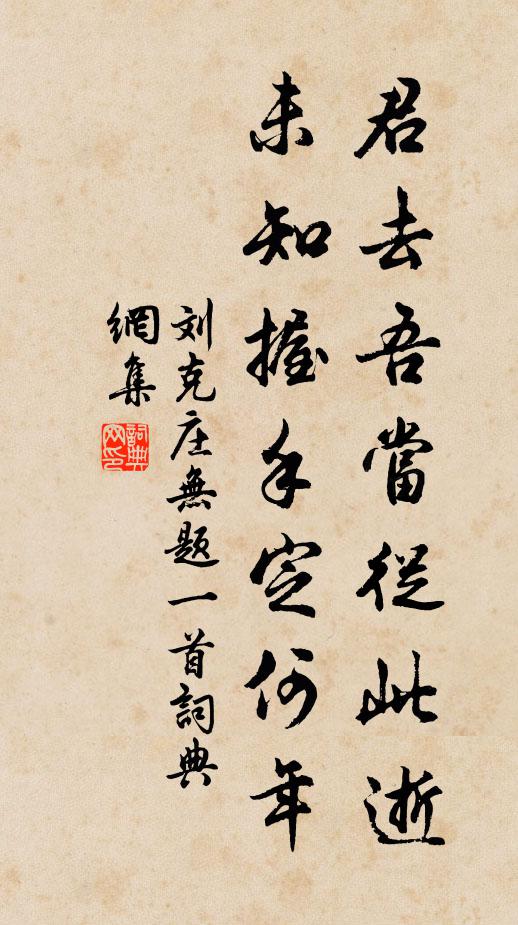 君去吾當從此逝
未知握手定何年
刘克庄無題一首詞典
網集
詞典
网印